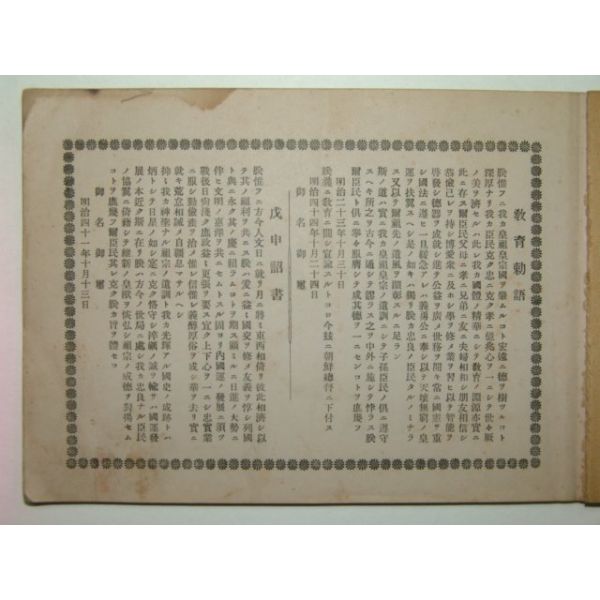 教育勅語
朕惟フニ我カ皇祖皇宗國ヲ肇ムルコト宏遠ニ德ヲ樹ツルコト
深厚ナリ我カ臣民克ク忠ニ克ク孝ニ億兆心ヲ一ニシテ世々厥
ノ美ヲ濟セルハ此レ我カ國體ノ精華ニシテ敎育ノ淵源亦實ニ
此ニ存ス爾臣民父母ニ孝ニ兄弟ニ友ニ夫婦相和シ朋友相信シ
恭儉己レヲ持シ博愛衆ニ及ホシ學ヲ修メ業ヲ習ヒ以テ智能ヲ
啓發シ德器ヲ成就シ進テ公益ヲ廣メ世務ヲ開キ常ニ國憲ヲ重
シ國法ニ遵ヒ一旦緩急アレハ義勇公ニ奉シ以テ天壤無窮ノ皇
運ヲ扶翼スヘシ是ノ如キハ獨リ朕カ忠良ノ臣民タルノミナラ
ス又以テ爾祖先ノ遺風ヲ顯彰スルニ足ラン
斯ノ道ハ實ニ我カ皇祖皇宗ノ遺訓ニシテ子孫臣民ノ俱ニ遵守
スヘキ所之ヲ古今ニ通シテ謬ラス之ヲ中外ニ施シテ悖ラス朕
爾臣民ト俱ニ拳々服膺シテ咸其德ヲ一ニセンコトヲ庶幾フ
明治二十三年十月三十日
朕曩ニ教育ニ關シ宣諭スルトコロ今茲ニ朝鮮總督ニ下付ス
明治四十四年十月二十四日
御名御璽
戊申詔書
朕惟フニ方今人文日ニ就リ月ニ將ミ東西相倚リ彼此相濟シ以
テ其ノ福利ヲ共ニス朕ハ爰ニ益々國交ヲ修メ友義ヲ惇シ列國
ト與ニ永ク其ノ慶ニ賴ラムコトヲ期ス顧ミルニ日進ノ大勢ニ
伴ヒ文明ノ惠澤ヲ共ニセムトスル固ヨリ內國運ノ發展ニ須ツ
戰後日尙淺ク庶政益々更張ヲ要ス宜ク上下心ヲ一ニシ忠實業
ニ服シ勤儉產ヲ治メ惟レ信惟レ義醇厚俗ヲ成シ華ヲ去リ實ニ
就キ荒怠相誡メ自彊息マサルヘシ
抑〻我カ神聖ナル祖宗ノ遺訓ト我カ光輝アル國史ノ成跡トハ
炳トシテ日星ノ如シ寔ニ克ク恪守シ淬礪ノ誠ヲ輸サハ國運發
展ノ本近ク斯ニ在リ朕ハ方今ノ世局ニ處シ我カ忠良ナル臣民
ノ協翼ニ倚藉シテ維新ノ皇猷ヲ恢弘シ祖宗ノ威德ヲ對揚セム
コトヲ庶幾フ爾臣民其レ克ク朕カ旨ヲ體セヨ
御名御璽
明治四十一年十月十三日